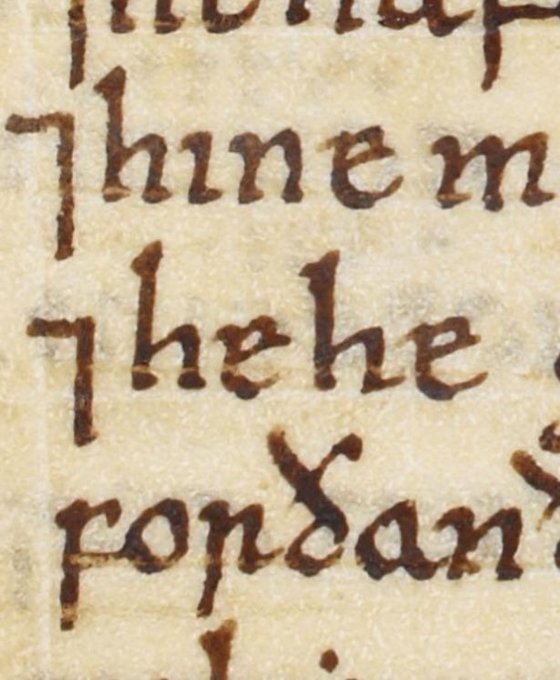 ⁊hine m
⁊hehe
forðan